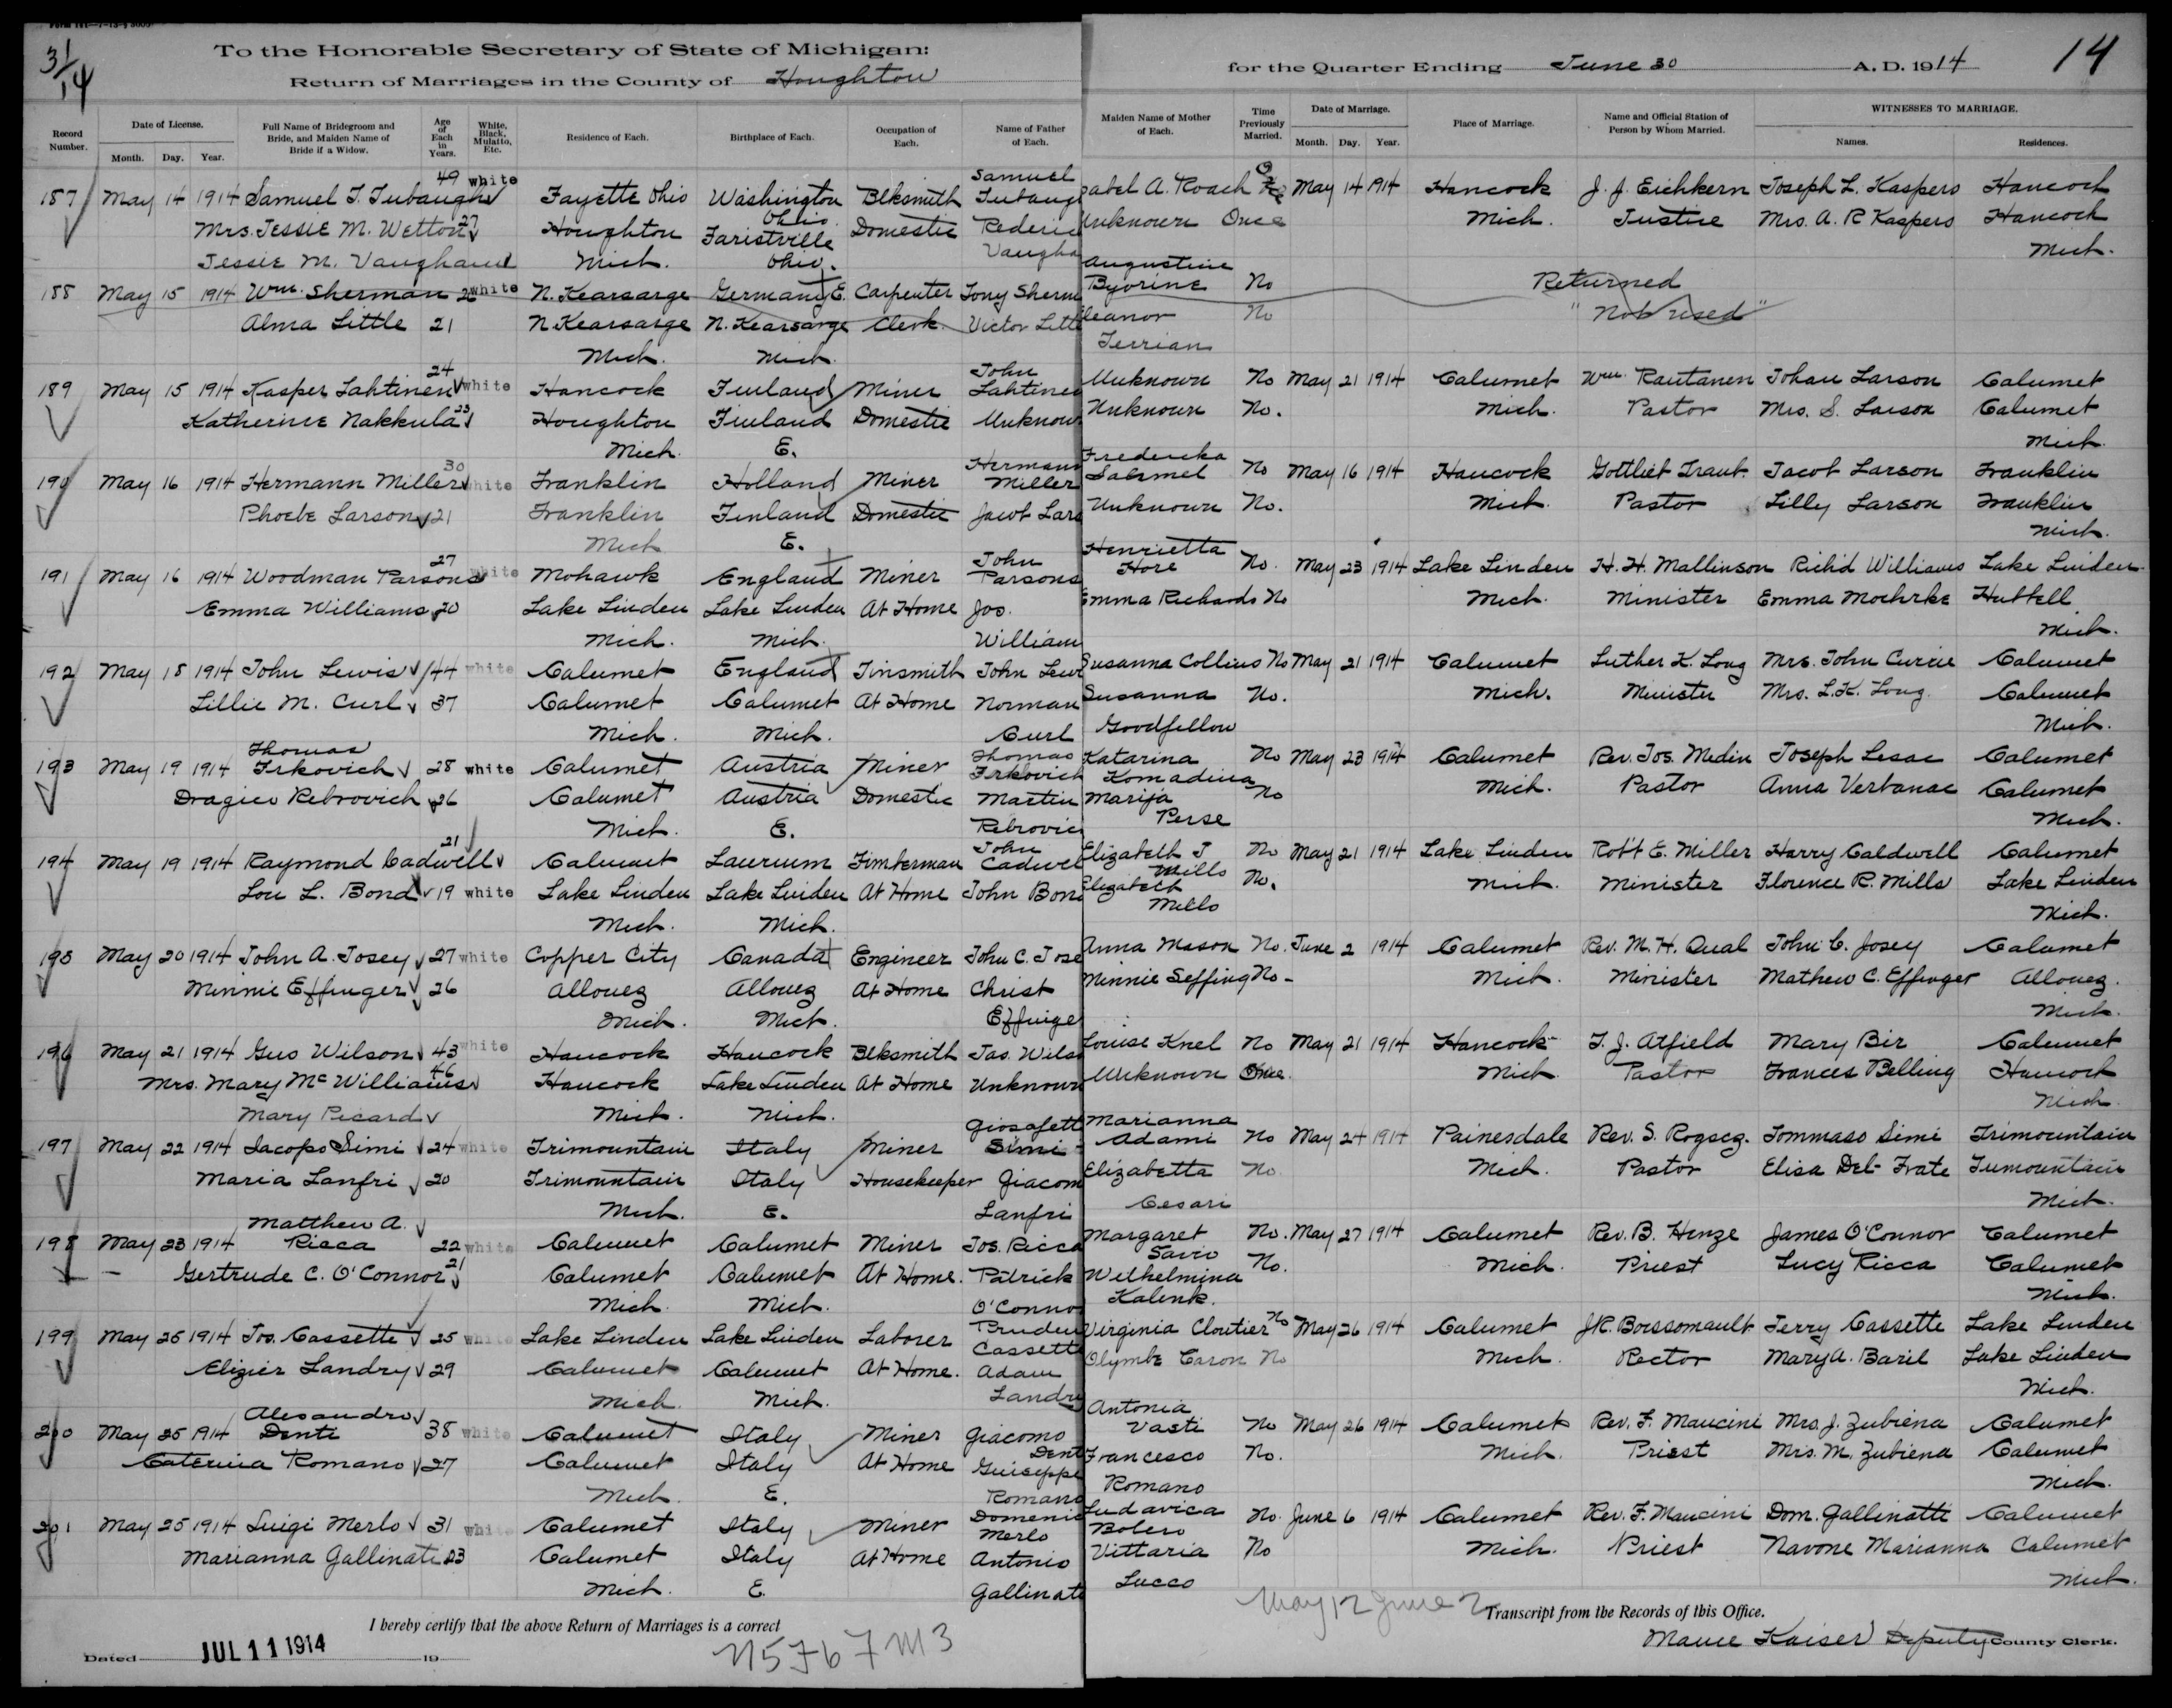 31/14
To the Honorable Secretary of State of Michigan:
Return of Marriages in the County of Houghton
for the Quarter Ending June 30 A. D. 1914
14
Record Number. Date of License. Month. Day. Year. Full Name of Bridegroom and Bride, and Maiden Name of Bride if a Widow. Age of Each in Years. White, Black, Mulatto, Etc. Residence of Each. Birthplace of Each. Occupation of Each. Name of Father of Each. Maiden Name of Mother of Each. Time Previously Married. Date of Marriage. Month. Day. Year. Place of Marriage. Name and Official Station of Person by Whom Married. WITNESSES TO MARRIAGE. Names. Residences.
187 May 14 1914 Samuel T. Tubaugh 49 white Fayette Ohio Washington Ohio Blksmith Samuel Tubaug abel A. Roach May 14 1914 Hancock J. J. Eichkern Joseph L. Kaspers Hancock
Mrs. Jessie M. Wetton 27 Houghton Faristville Domestic Rederic Unknown Once Mich. Justice Mrs. A. R Kaspers Hancock
Jessie M. Vaughan Mich. Ohio. Vaugha Mich.
188 May 15 1914 Wm. Sherman 22 white N. Kearsarge Germany E. Carpenter Tony Sherm Augustine Byorine No Returned
Alma Little 21 N. Kearsarge N. Kearsarge Clerk Victor Littl leanor No "Not used"
Mich. Mich. Terrian
189 May 15 1914 Kasper Lahtinen 24 white Hancock Finland Miner John Lahtinen Unknown No May 21 1914 Calumet Wm. Rautanen Johan Larson Calumet
Katherine Nakkula 23 Houghton Finland Domestic Unknown Unknown No. Mich. Pastor Mrs. S. Larson Calumet
Mich. E. Mich.
190 May 16 1914 Hermann Miller 30 white Franklin Holland Miner Hermann Miller Fredericka Salomel No May 16 1914 Hancock Gottliet Traut. Jacob Larson Franklin
Phoebe Larson 21 Franklin Finland Domestic Jacob Lars Unknown No. Mich. Pastor Lilly Larson Franklin
Mich E. Mich.
191 May 16 1914 Woodman Parsons 27 white Mohawk England Miner John Parsons Henrietta Hore No. May 23 1914 Lake Linden H. H. Mallinson Rich'd Williams Lake Linden
Emma Williams 20 Lake Linden Lake Linden At Home Jos. Emma Richards No Mich. Minister Emma Moehrke Hubbell
Mich. Mich. William Mich.
192 May 18 1914 John Lewis 44 white Calumet England Tinsmith John Lew Susanna Collins No May 21 1914 Calumet Luther K. Long Mrs. John Currie Calumet
Lillie M. Curl 37 Calumet Calumet At Home Norman Susanna No. Mich. Minister Mrs. L. K. Long. Calumet
Mich. Mich. Curl Goodfellow Mich.
193 May 19 1914 Thomas Frkovich 28 white Calumet Austria Miner Thomas Frkovich Katarina Komadina No May 23 1914 Calumet Rev. Jos. Medin Joseph Lesac Calumet
Dragica Rebrovich 26 Calumet Austria Domestic Martin Marija No Mich. Pastor Anna Verbanac Calumet
Mich. E. Rebrovic Perse Mich.
194 May 19 1914 Raymond Cadwell 21 Calumet Laurium Timberman John Cadwel Elizabeth J Mills No May 21 1914 Lake Linden Rob't E. Miller Harry Caldwell Calumet
Lou L. Bond 19 white Lake Linden Lake Linden At Home John Bon Elizabeth Mills No. Mich. Minister Florence R. Mills Lake Linden
Mich. Mich. Mich.
195 May 20 1914 John A. Josey 27 white Copper City Canada Engineer John C. Jose Anna Mason No. June 2 1914 Calumet Rev. M. H. Qual John C. Josey Calumet
Minnie Effinger 26 Allouez Allouez At Home Christ Minnie Seffing No Mich. Minister Mathew C. Effinger Allouez.
Mich. Mich. Effinge Mich.
196 May 21 1914 Gus Wilson 43 white Hancock Hancock Blksmith Jas. Wils Louise Knel No May 21 1914 Hancock T. J. Atfield Mary Bir Calumet
Mrs. Mary McWilliams 46 Hancock Lake Linden At Home Unknown Unknown Once. Mich. Pastor Frances Belling Hancock
Mary Picard Mich. Mich. Mich.
197 May 22 1914 Iacopo Simi 24 white Trimountain Italy Miner Giosafett Simi Marianna Adami No May 24 1914 Painesdale Rev. S. Rogscz. Tommaso Simi Trimountain
Maria Lanfri 20 Trimountain Italy Housekeeper Giacom Elizabetta No. Mich. Pastor Elisa Del Frate Trimountain
Mich. E. Lanfri Cesari Mich.
198 May 23 1914 Matthew A. Ricca 22 white Calumet Calumet Miner Jos. Ricca Margaret Savio No. May 27 1914 Calumet Rev. B. Henze James O'Connor Calumet
Gertrude C. O'Connor 21 Calumet Calumet At Home. Patrick Welhelmina No. Mich. Priest Lucy Ricca Calumet
Mich. Mich. O'Conno Kalenk. Mich.
199 May 25 1914 Jos. Cassette 25 white Lake Linden Lake Linden Laborer Pruden Cassette Virginia Cloutier No May 26 1914 Calumet J.R. Boissomault Jerry Cassette Lake Linden
Elizier Landry 29 Calumet Calumet At Home. Adam Olymbe Caron No Mich. Rector Mary A. Baril Lake Linden
Mich. Mich. Landry Mich.
200 May 25 1914 Alesandro Denti 38 white Calumet Italy Miner Giacomo Dent Antonia Vasti No May 26 1914 Calumet Rev. F. Mancini Mrs. J. Zubiena Calumet
Caterina Romano 27 Calumet Italy At Home Guiseppe Francesco No. Mich. Priest Mrs. M. Zubiena Calumet
Mich. E. Romano Romano Mich.
201 May 25 1914 Luigi Merlo 31 white Calumet Italy Miner Domenic Merlo Ludavica Bolero No. June 6 1914 Calumet Rev. F. Mancini Dom. Gallinatti Calumet
Marianna Gallinati 23 Calumet Italy At Home Antonio Vittaria No Mich. Priest Navone Marianna Calumet
Mich. E. Gallinat Lucco Mich.
May 12 June 2
I hereby certify that the above Return of Marriages is a correct Transcript from the Records of this Office.
Dated JUL 11 1914 19
N5 F6 7 M3
Kaiser Deputy County Clerk.